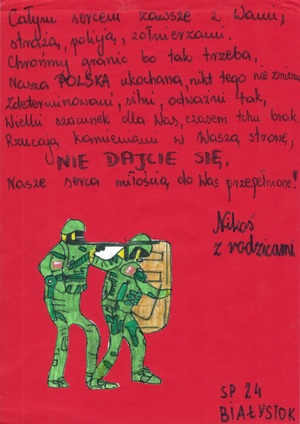 Całym sercem zawsze z Wami,
strażą, policją, żołnierzami.
Chrońmy granic bo tak trzeba,
Nasza POLSKA ukochana, nikt tego nie zmieni
Zdeterminowani, silni, odważni tak,
Wielki szacunek dla Was, czasem tchu brak.
Rzucają kamieniami w Waszą stronę,
NIE DAJCIE SIĘ,
Nasze serca miłością do Was przepełnione!
Nikoś
z rodzicami
SP 24
BIAŁYSTOK